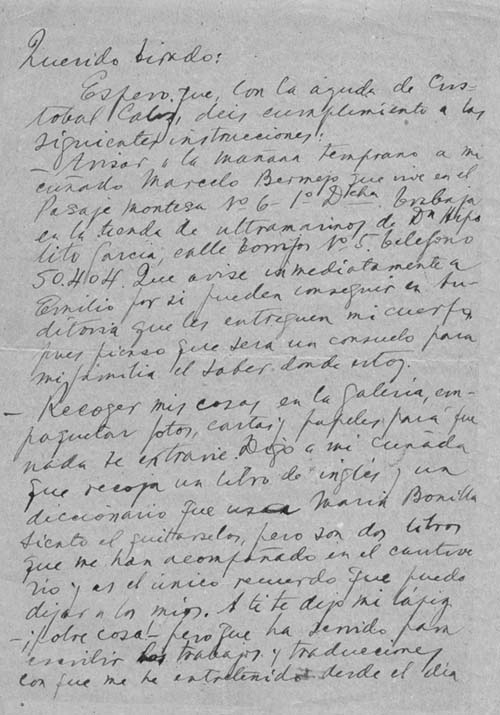 Querido Sirado:
Espero que, con la ayuda de Cris-
tobal Calog, deis cumplimiento a las
siguientes instrucciones:
- Avisar a la mañana temprano a mi
cuñado Marcelo Bermejo que vive en el
Pasaje Montesa Nº 6-1º Dcha. Trabaja
en la tienda de ultramarinos de Dn Hipo
lito Garcia, calle Torrijos Nº 5. Telefono
50.404. Que avise inmediatamente a
Emilio por si pueden conseguir en Au-
ditoria que les entreguen mi cuerpo,
pues pienso que será un consuelo para
mi familia el saber donde estoy.
- Recoger mis cosas en la Galeria, em-
paquetar fotos, cartas y papeles para que
nada se extravie. Digo a mi cuñada
que recoja un libro de inglés y un
diccionario que usa Maria Bonilla
Siento el quitarselos, pero son dos libros
que me han acompañado en el cautive
rio y es el único recuerdo que puedo
dejar a los mios. A ti te dejo mi lápiz
- ¡pobre cosa! - pero que ha servido para
escribir los trabajos y traducciones
con que me he entretenido desde el dia